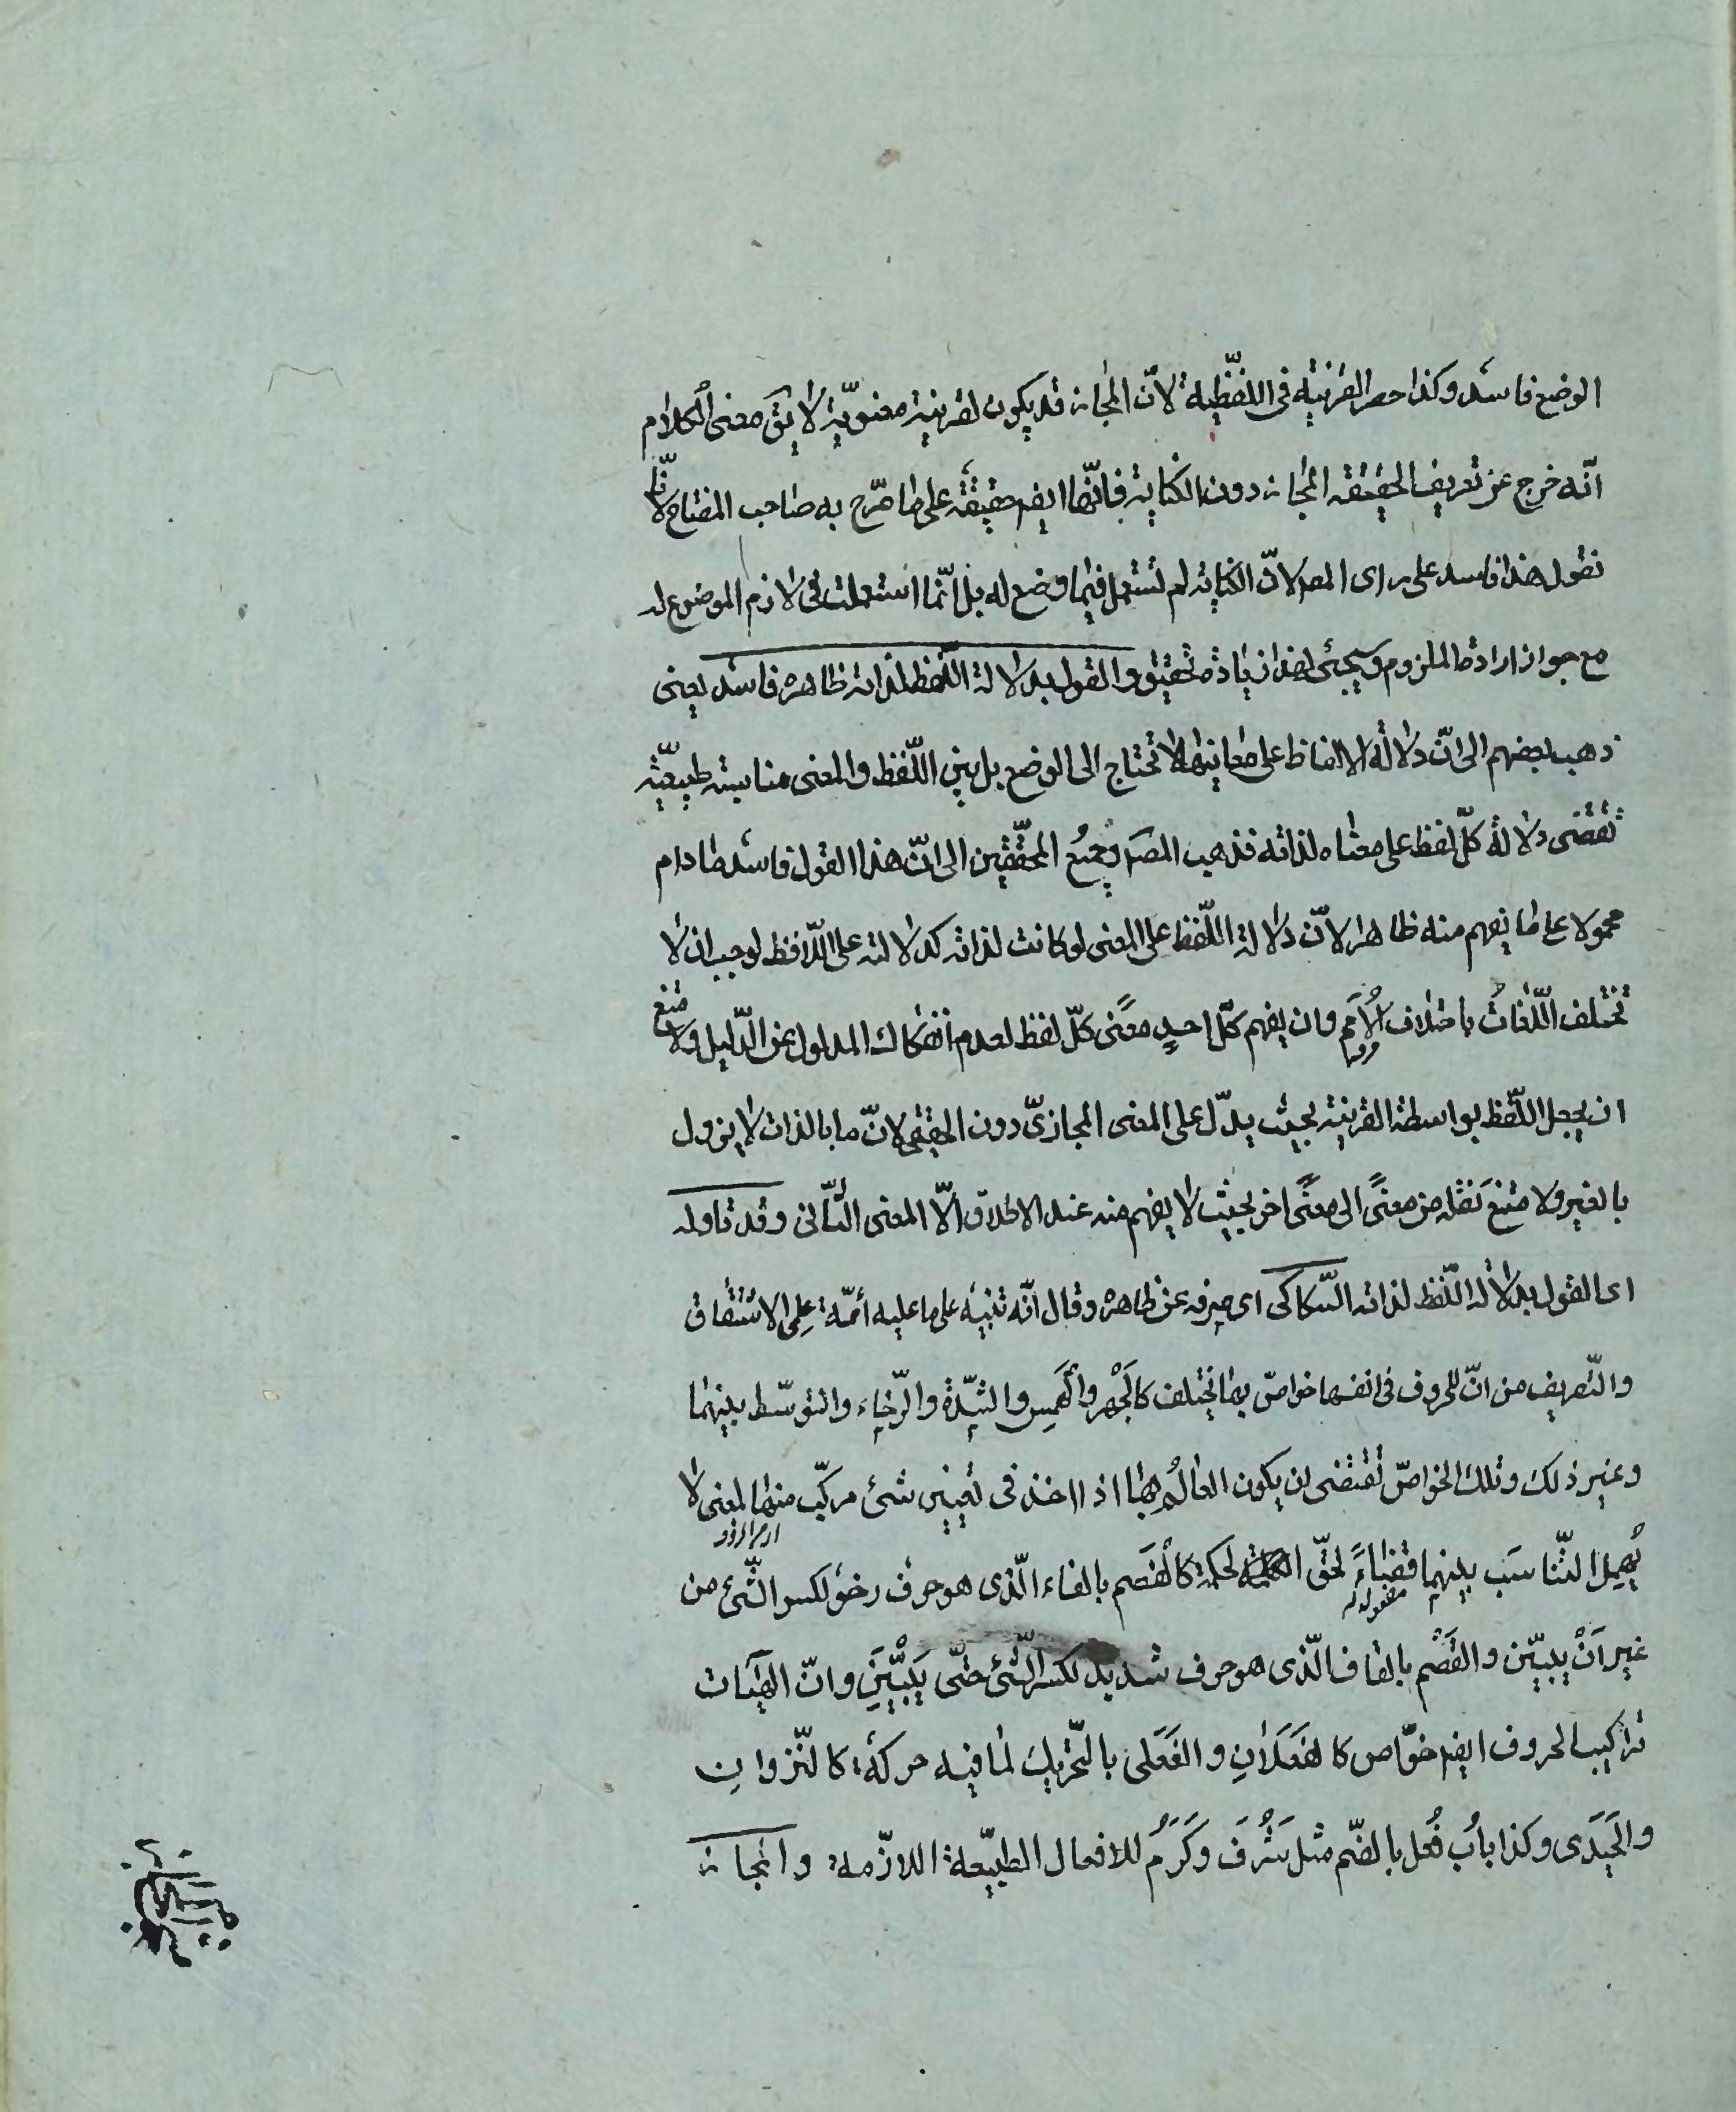 الوضع فاسد وكذا حصر القرنية فى اللفظية لانّ المجاز قد يكون لقرينة معنويّة لا يقَ معنى الكلام
انّه خرج عن تعريف الحقيقة المجاز دون الكناية فانّها ايضم حقيقة على ما صرّح به صاحب المفتاح لانّا
نقول هذا فاسد على راى المصر لانّ الكناية لم تستعمل فيما وضع له بل انّما استعملت فى لازم الموضوع له
مع جواز ارادة الملزوم وسيجئ لهذا زيادة تحقيق والقول بدلالة اللّفظ لذاته ظاهره فاسد يعنى
ذهب بعضهم الى انّ دلالة الالفاظ على معانيها لا تحتاج الى الوضع بل بين اللّفظ والمعنى مناسبة طبيعيّة
تقتضى دلالة كلّ لفظ على معناه لذاته فذهب المصَ وجميع المحقّقين الى انّ هذا القول فاسد ما دام
محمولا على ما يفهم منه ظاهرا لانّ دلالة اللّفظ على المعنى لو كانت لذاته كدلالته على اللّافظ لوجب ان لا
تختلف اللّغاتُ باختلاف الأُمَم وان يفهم كلّ احدٍ معنًى كلّ لفظ لعدم انفكاك المدلول عن الدّليل ولامتنع
ان يجعل اللّفظ بواسطة القرينة بحيث يدلّ على المعنى المجازىّ دون الحقيقى لانّ ما بالذات لا يزول
بالغير ولامتنعَ نَقْله من معنًى الى معنًى اخر بحيث لا يفهم منه عند الاطلاق الّا المعنى الثّانى وقد تاوله
اى القول بدلالة اللّفظ لذاته السّكاكى اى صرفه عن ظاهره وقال انّه تنبيه على ما عليه أئمّة عِلمى الاشتقاق
والتّصريف من انّ للحروف فى انفسها خواصّ بها تختلف كالجَهْر والهَمِس والشِدّة والرّخاء والتوسّط بينهما
وغير ذلك وتلك الخواصّ تقتضى ان يكون العالُم بها اذا اخذ فى تعيين شئ مركّب منها لمعنى لا
يُهمِل التّناسَب بينهما قضاءً لحقّ الحكمة كالفَصم بالفاء الّذى هو حرف رخو لكسر الشّئ من
مفعول له
غير اَنْ يبيّن والقَصْم بالقاف الّذى هو حرف شديد لكسر الشّئ حتّى يَبيّن وانّ الهيئات
تراكيب الحروف ايضم خوّاص كالفَعَلانِ والفَعَلى بالتّحريك لما فيه حركة كالنّزوانِ
والحَيَدَى وكذا بابُ فُعل بالضّم مثل شَرُفَ وكَرَمُ للافعال الطبيّعة اللازّمة والمجاز